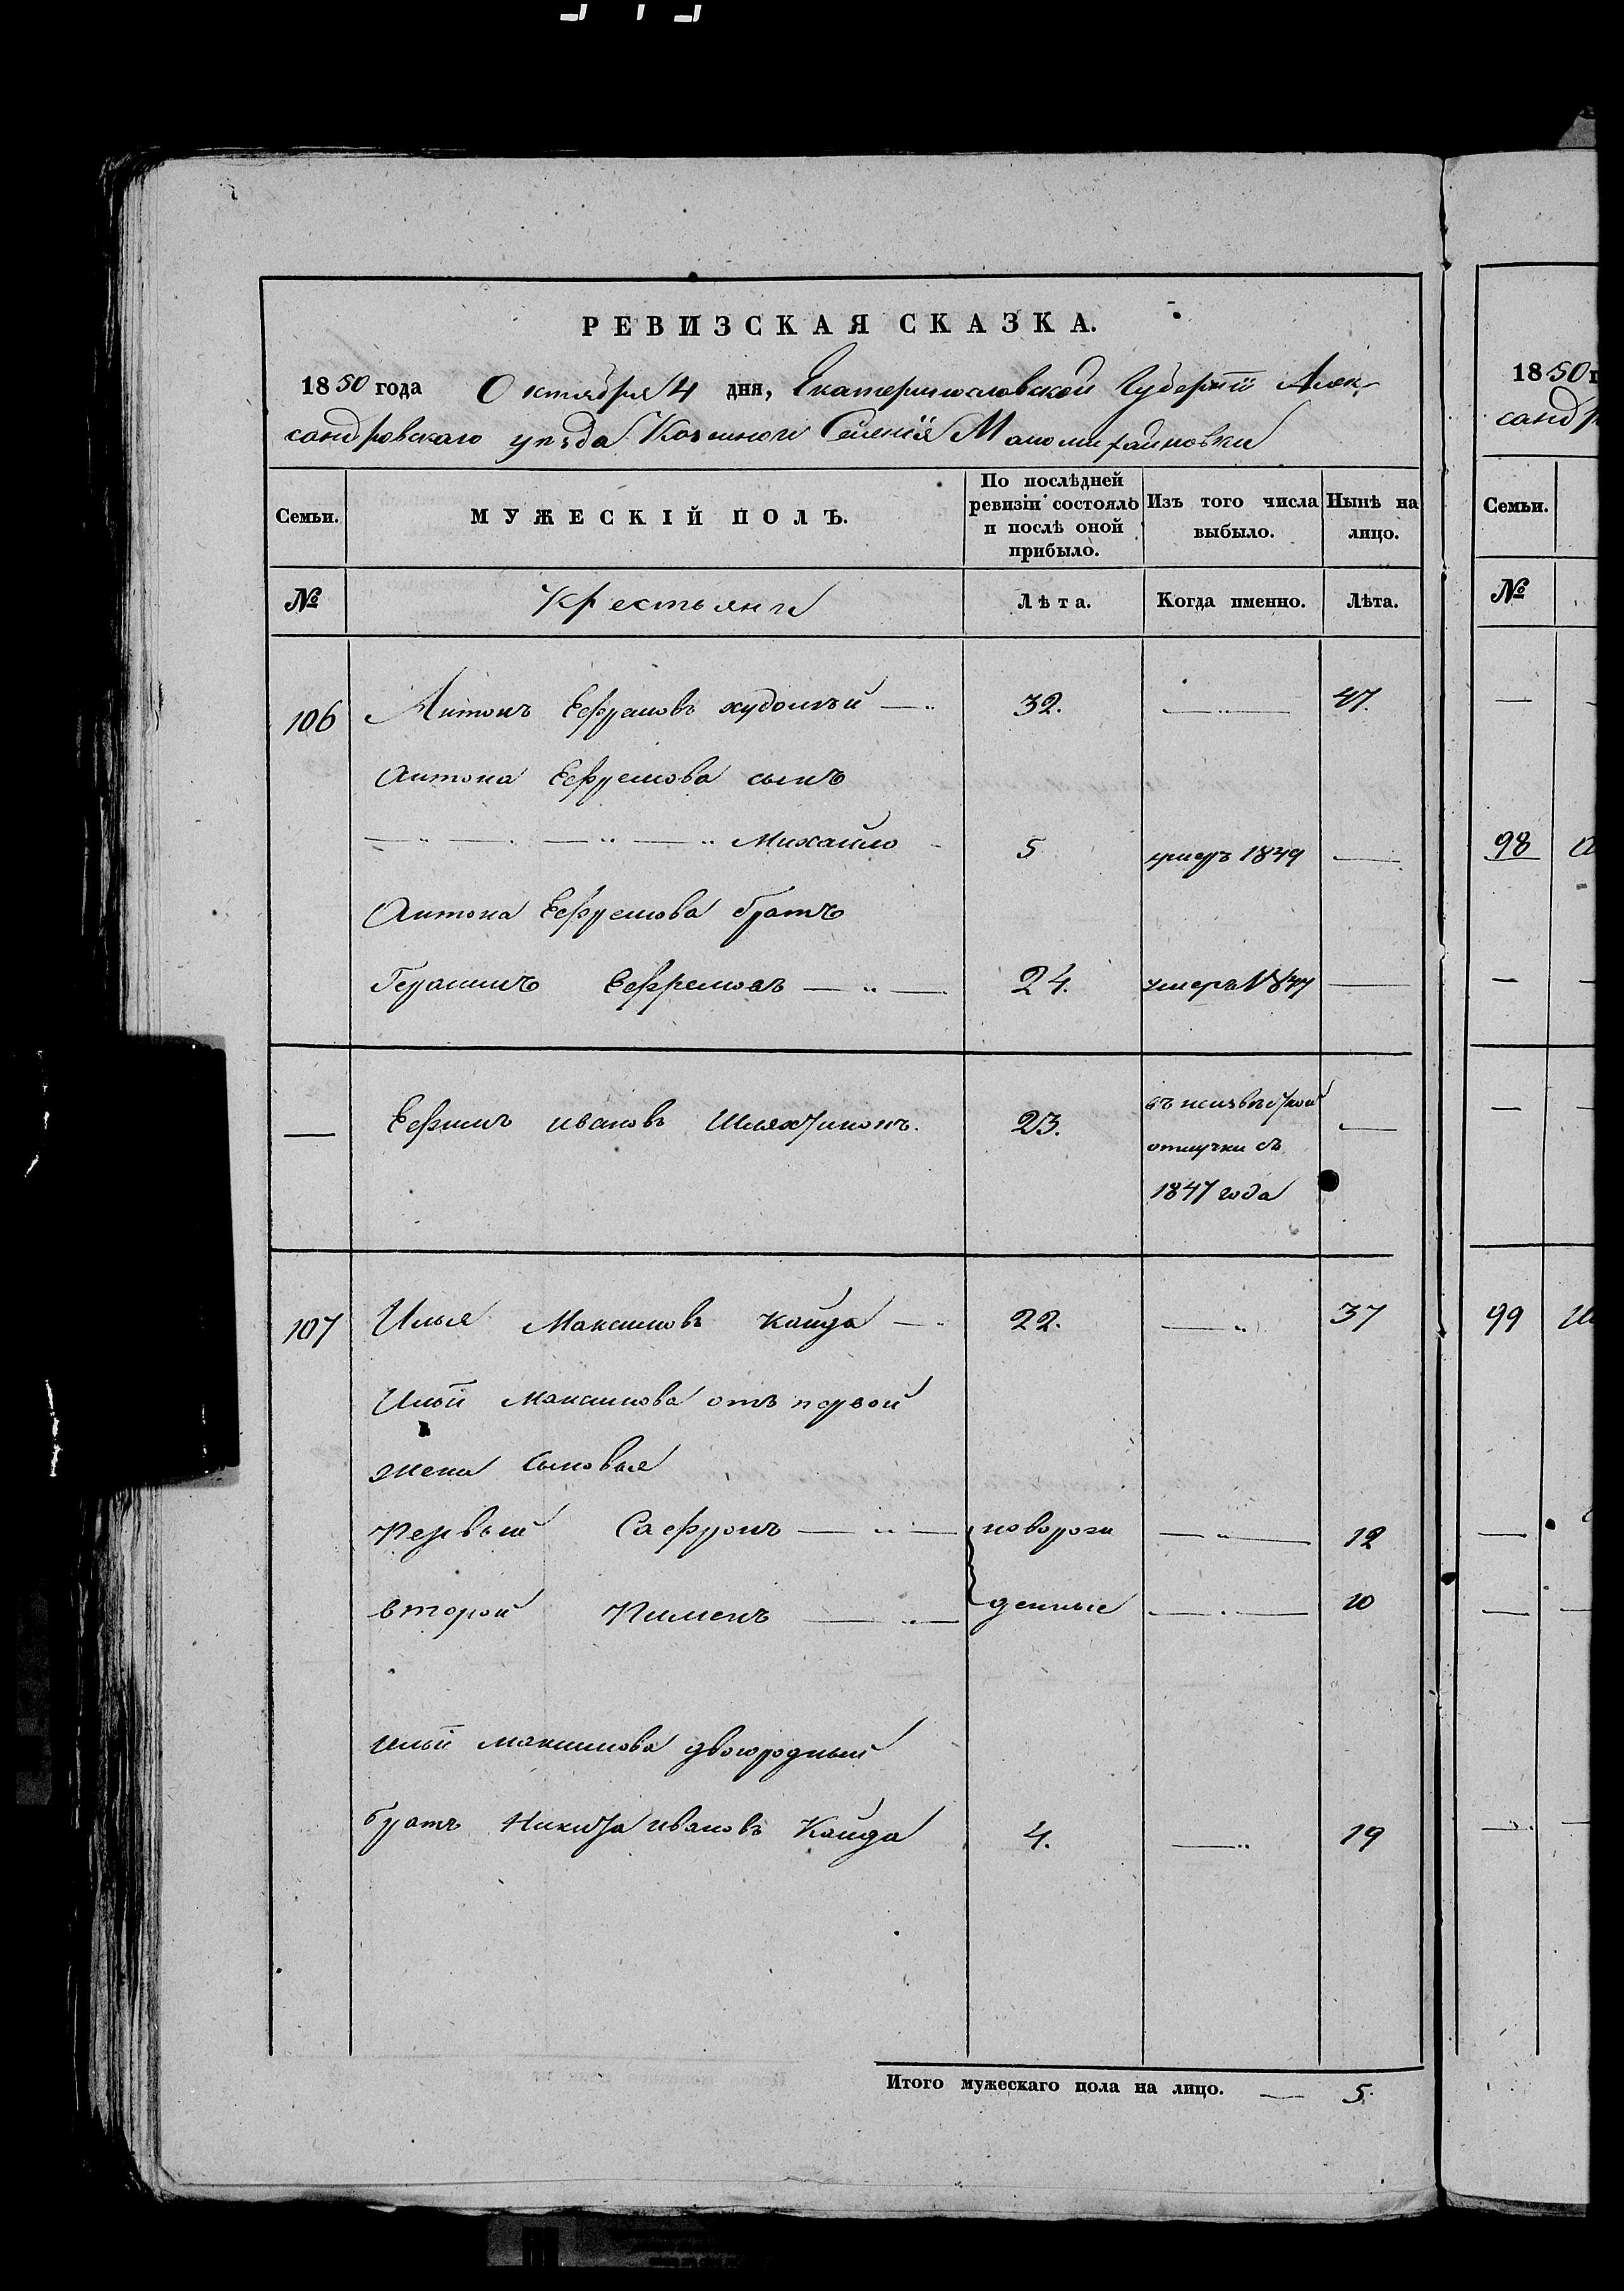 РЕВИЗСКАЯ СКАЗКА.
1850 года Октября 4 дня, Екатеринославской Губернiи Алек-
сандровскаго уѣзда Казенного Селенiя Маломихайловки
Семьи.
МУЖЕСКІЙ ПОЛЪ.
По послѣдней ревизіи состояло и послѣ оной прибыло.
Изъ того числа выбыло.
Нынѣ на лицо.
№
Крестьяне
Лѣта.
Когда именно.
Лѣта.
106 Антонъ Ефремовъ худолѣй — 32. — 47.
Антона Ефремова сынъ
Михайло 5 умеръ 1849 —
Антона Ефремова братъ
Герасимъ Ефремовъ — 24. умеръ 1847 —
— Ефимъ ивановъ 23. въ неизвѣстной —
отлучки съ
1847 года
107 Илья Максимовъ Кайда — 22. — 37
Ильи Максимова отъ первой
жены сыновья
первый Сафронъ — новорож — 12
второй Пименъ — денные — 10
Ильи Максимова двоюродный
братъ Никита ивановъ Кайда 4. — 19
Итого мужескаго пола на лицо. — 5.
1850 г
санд
Семьи.
№
98
99